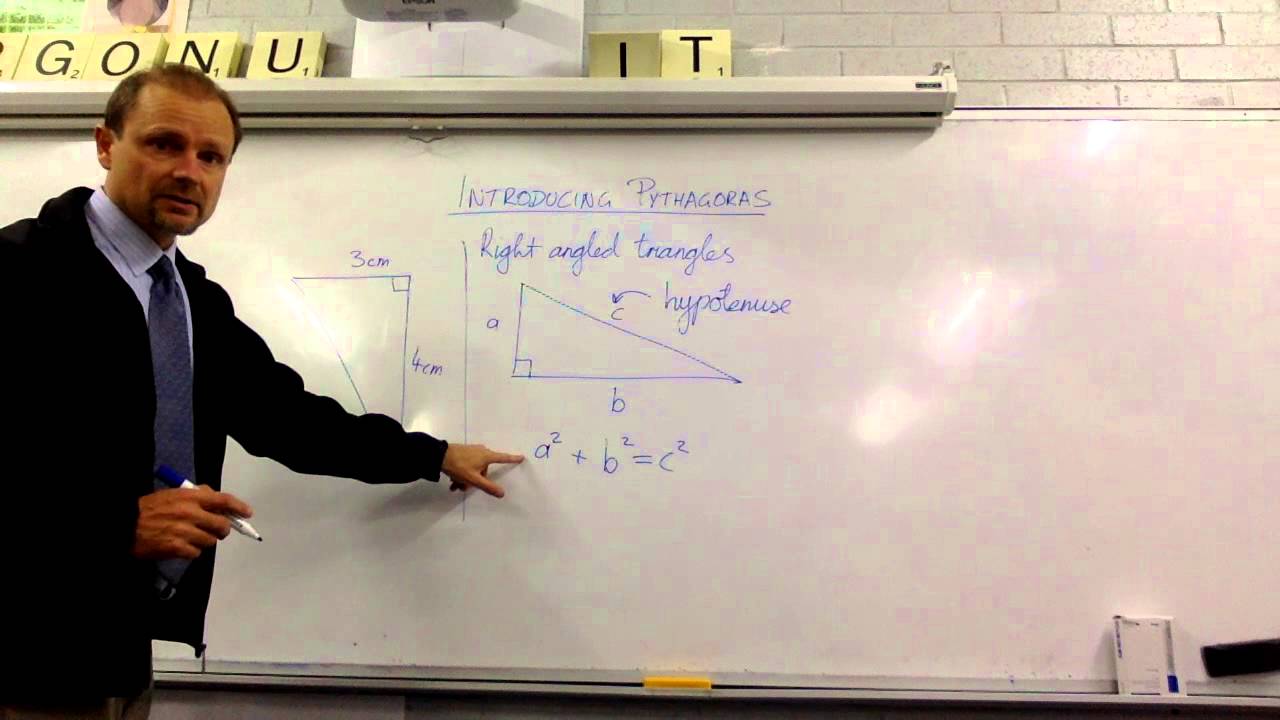 EPSON
GONU IT
INTRODUCING PYTHAGORAS
3cm
4cm
Right angled triangles
a
c
hypotenuse
b
a² + b² = c²